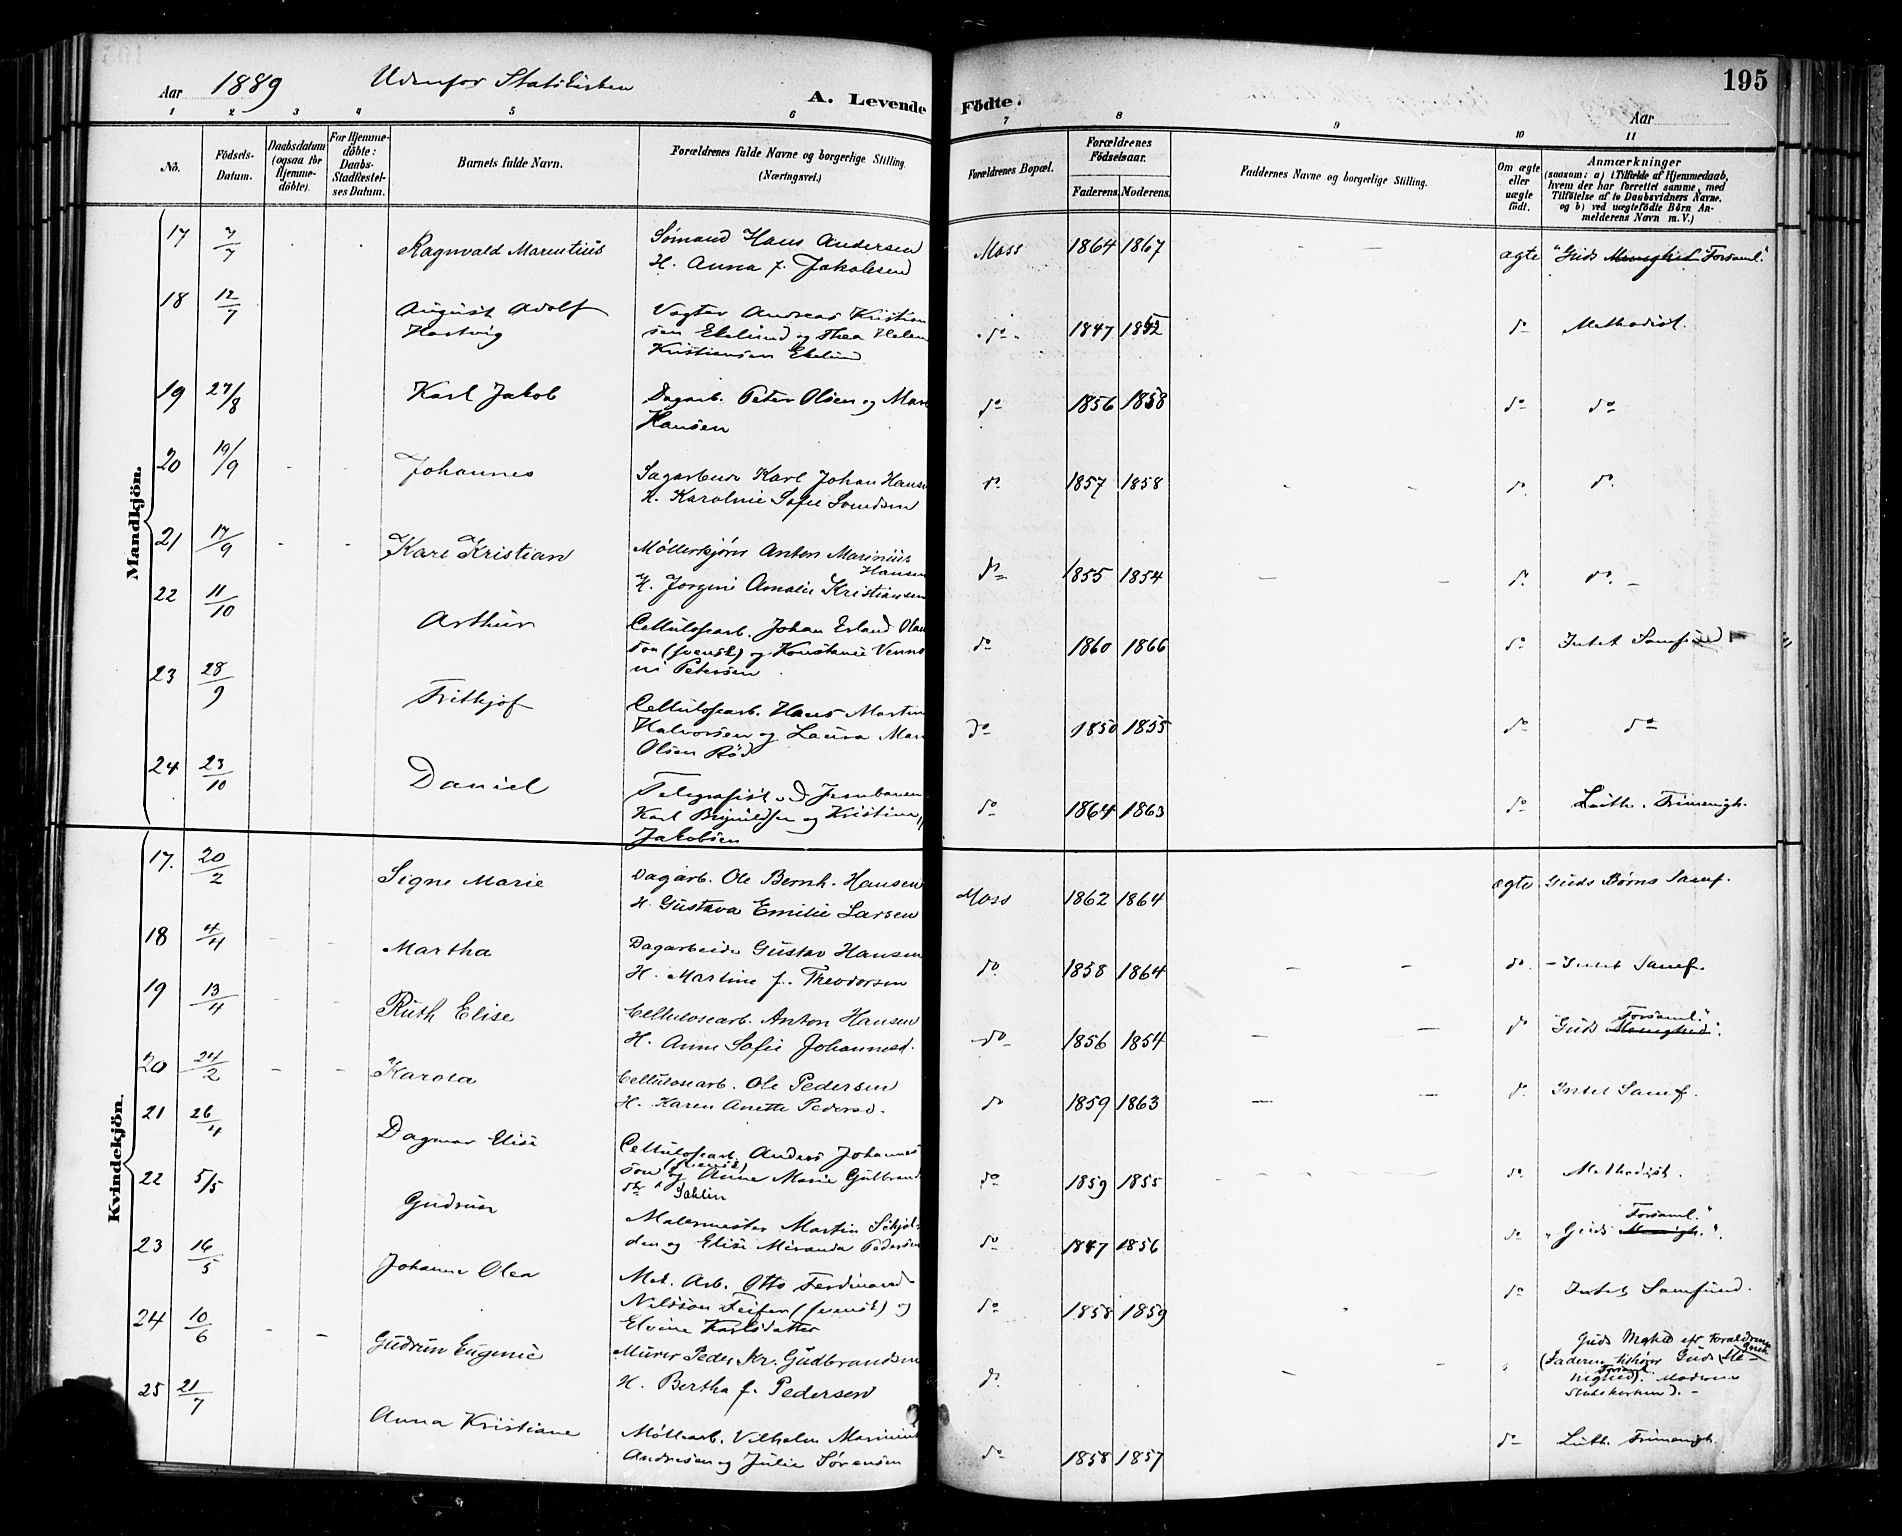 Aar 1889 Udenfor Statskirken
A. Levende Födte.
195
Aar
1 2 3 4 5 6 7 8 9 10 11
No.
Födsels-Datum.
Daabsdatum (ogsaa for Hjemmedöbte).
For Hjemmedöbte: Daabs-Stadfæstelses Datum.
Barnets fulde Navn.
Forældrenes fulde Navne og borgerlige Stilling. (Næringsvei.)
Forældrenes Bopæl.
Forældrenes Födselsaar.
Faderens. Moderens.
Faddernes Navne og borgerlige Stilling.
Om ægte eller uægte födt.
Anmærkninger
(saasom: a) i Tilfælde af Hjemmedaab, hvem der har forrettet samme, med Tilföielse af to Daabsvidners Navne. og b) ved uægtefödte Börn Anmelderens Navn m. V.)
Mandkjön.
17 7/7 Ragnvald Marentius Sømand Hans Andersen
H. Anna f. Jakobsen Moss 1864 1867 ægte "Guds Menighed Forsaml."
18 12/7 August Adolf
Hartvig Vogter Andreas Kristian
sen Ekelund og Thea Helen
Kristiansen Ekelund do 1847 1852 do Methodist.
19 27/8 Karl Jakob Dagarb. Peter Olsen og Mar
Hansen do 1856 1858 do do
20 19/9 Johannes Sagarbeide Karl Johan Hanse
H. Karoline Sofie do 1857 1858 do do
21 17/9 Kare Kristian Møllerkjører Anton Marinius
Hansen
H. Jorgine Amalie Kristiansen do 1855 1854 do do
22 11/10 Arthur Cellulosearb. Johan Erland Olau
son (svensk) og Konstance
Petersen do 1860 1866 do Intet Samfund
23 28/9 Frithjof Cellulosearb. Hans Martin
Halvorsen og Laura Mar
Olsen Rød do 1850 1855 do do
24 23/10 Daniel Telegrafist v. d. Jernbanen
Karl og Kristine
Jakobsen do 1864 1863 do Luth. Frimenigh.
Kvindekjön.
17. 20/2 Signe Marie Dagarb. Ole Bernh. Hansen
H. Gustava Emilie Larsen Moss 1862 1864 ægte Guds Børns Samf.
18 4/4 Martha Dagarbeide Gustav Hansen
H. Martine f. Theodorsen do 1858 1864 do Intet Samf.
19 13/4 Ruth Elise Cellulosearb. Anton Hansen
H. Anne Sofie Johannesd. do 1856 1854 do "Guds Menighed Forsaml."
20 24/2 Karola Cellulosearb. Ole Pedersen
H. Karen Anette Pedersd. do 1859 1863 do Intet Samf.
21 26/4 Dagmar Elise Cellulosearb. Anders Johannes
son (svensk) og Anne Marie Gulbrand
str Sahlin do 1859 1855 do Methodist.
22 5/5 Gudrun Malermester Martin Skjol
den og Elise Miranda Pedersen do 1847 1856 do "Guds Menigh. Forsaml."
23 16/5 Johanne Olea Mek. Arb. Otto Ferdinand
Nilsson Feifer (svensk) og
Elvine Karlsdatter do 1858 1859 do Intet Samfund.
24 10/6 Gudrun Eugenie Murer Peder Kr. Gudbrandsen
H. Bertha f. Pedersen do Guds Mghed eft Foraldrene
(Faderen tilhører Guds Me-
nighed). Moderen
Statskirken).
25 21/7 Anna Kristiane Møllearb. Vilhelm Marinius
Andresen og Julie Sørensen do 1858 1857 do Luth. Frimenigh.